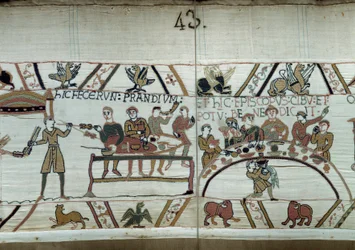 43.
hIC FECERVN: PRANDIVM:
ET hIC·EPISCOPVS:CIBV:ET
POTV:BENEDICIT·